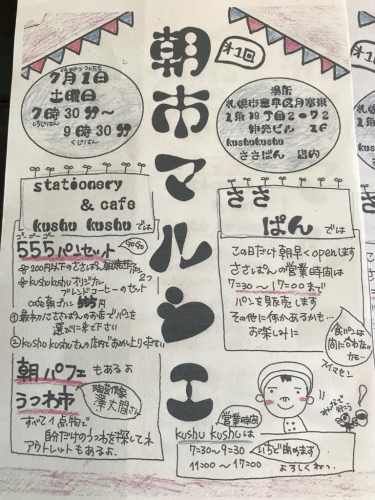 第1回
朝市マルシェ
7月1日
土曜日
7時30分〜
9時30分
場所
札幌市豊平区月寒東
1条19丁目2-72
1F
kushukushu
ささぱん 店内
stationery
& cafe
kushu kushu では
555パンセット
ゴーゴーゴー
GoGo
※200円以下のささぱん
※kushukushuオリジナル
ブレンドコーヒーのセット
555円
①最初にささぱんのお店でパンを
選びに来て下さい
②kushu kushuさん店内でお召し上り下さい
ささ
ぱん では
この日だけ朝早くopenします
ささぱんの営業時間は
7:30〜17:00まで
パンを販売します
その他に何かあるかも…
お楽しみに
食パンは
間に合わない
カモ…
スイマセン
朝パフェ もあるよ
うつわ市
陶芸作家
すべて1点物で
自分だけのうつわを探してネ
アウトレットもあるよ。
営業時間
kushu kushu は
7:30〜9:30
いちど閉めます
11:00〜17:00
よろしくねっ